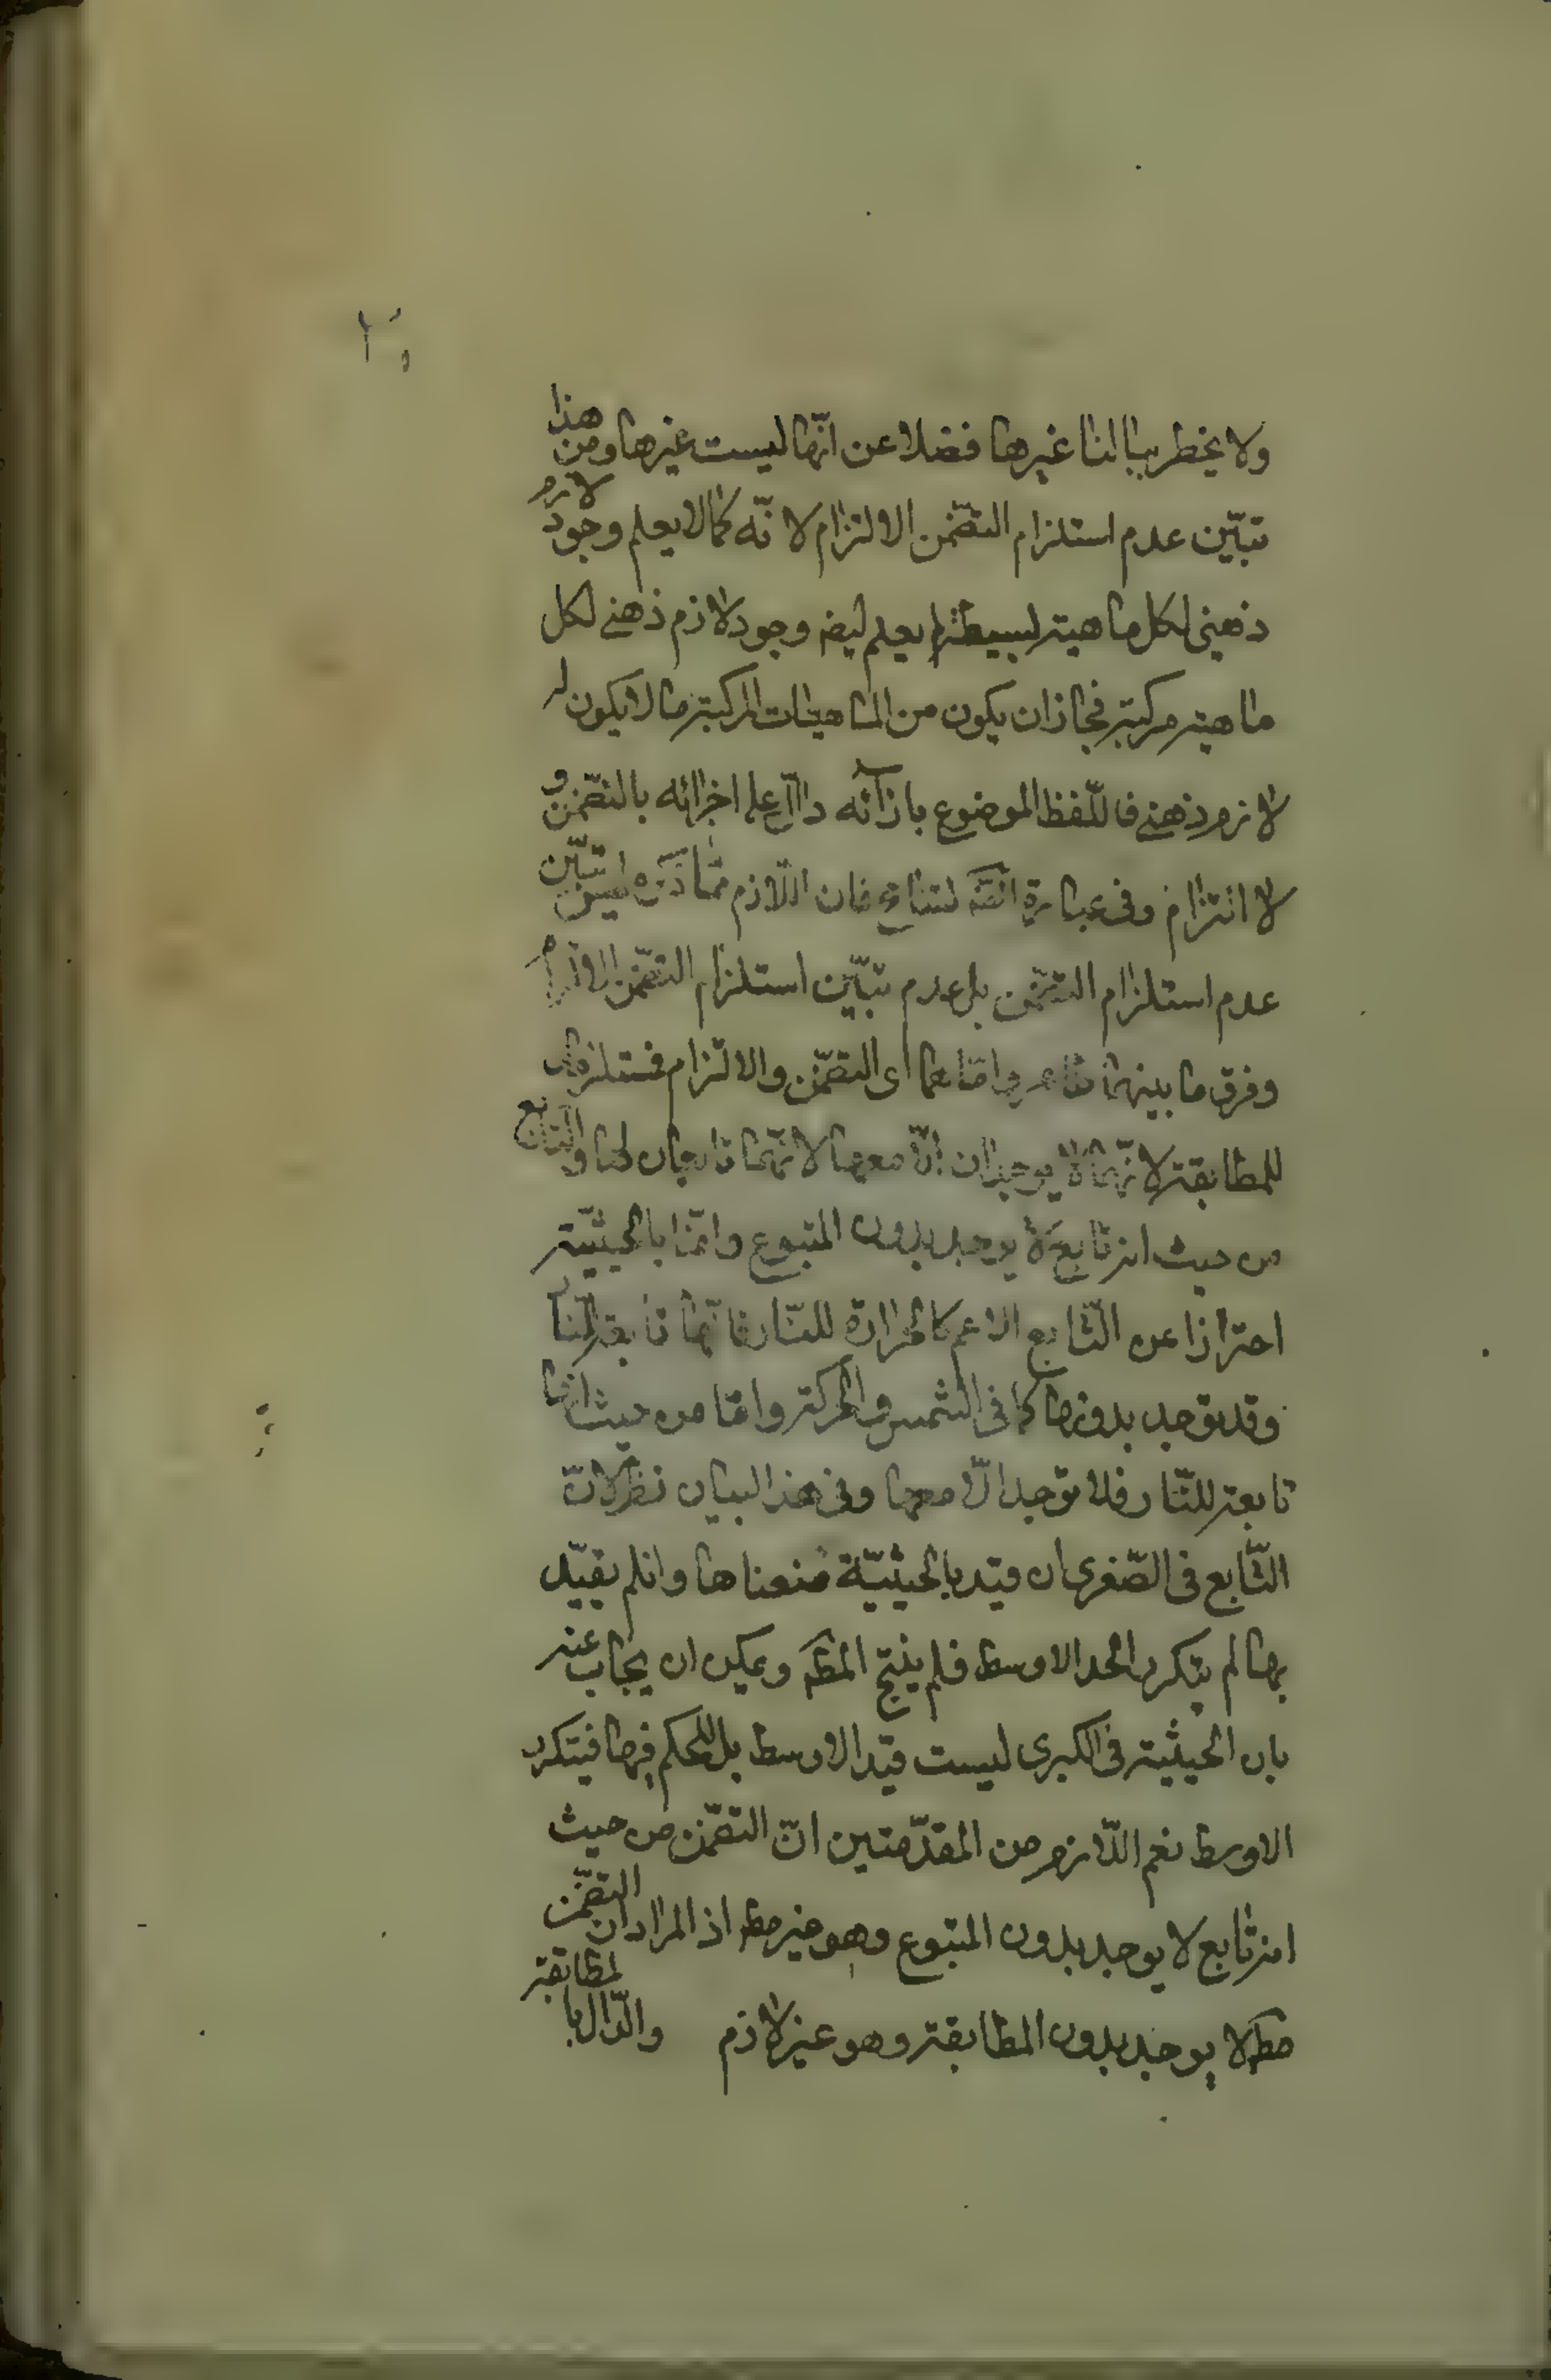 ولا يخطر ببالنا غيرها فضلا عن انّها ليست غيرها ومن هذا
تبيّن عدم استلزام التضمّن الالتزام لانّه كما لا يعلم وجود لازم
ذهنى لكل ماهية بسيطة لم يعلم ايضا وجود لازم ذهنے لكل
ماهية مركبة فجاز ان يكون من الماهيات المركبة ما لا يكون له
لازم ذهنے فاللّفظ الموضوع بازآئه دالّ على اجزائه بالتضمّن و
لا التزام وفى عبارة المصّ تسامح فان اللّازم ممّا ذكره ليس تبيّن
عدم استلزام التضمّن بل عدم تبيّن استلزام التضمّن الالتزام
وفرق ما بينهما ظاهر واما هما اى التضمّن والالتزام فمستلزمان
للمطابقة لانّهما لا يوجدان الّا معها لانّهما تابعان لها والتابع
من حيث انه تابع لا يوجد بدون المتبوع وانّما بالحيثيّة
احترازا عن التّابع الاعم كالحرارة للنّار فانّها تابعة للنّار
وقد توجد بدونها كما فى الشمس والحركة واما من حيث انها
تابعة للنّار فلا توجد الّا معها وفى هذا البيان نظر لانّ
التّابع فى الصّغرى ان قيّد بالحيثيّة منعناها وان لم يقيّد
بها لم يتكرر الحد الاوسط فلم ينتج المطَ ويمكن ان يجاب عنه
بان الحيثية فى الكبرى ليست قيد الاوسط بل للحكم فيها فيتكرر
الاوسط نعم اللّازم من المقدّمتين انّ التضمّن من حيث
انه تابع لا يوجد بدون المتبوع وهو غير مط اذ المراد ان التضمّن
مطَ لا يوجد بدون المطابقة وهو غير لازم والدّال بالمطابقة